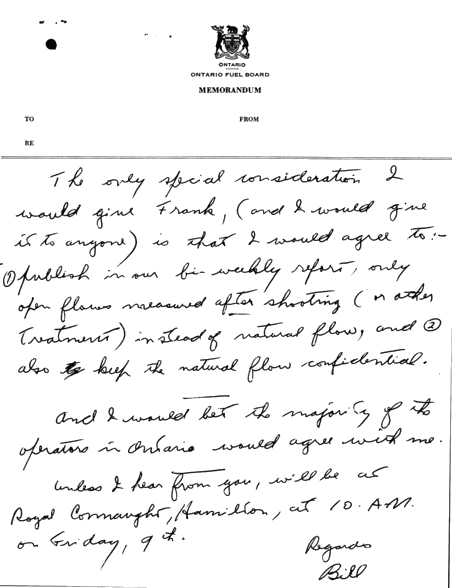 ONTARIO
ONTARIO FUEL BOARD
MEMORANDUM
TO FROM
RE
The only special consideration I
would give Frank, (and I would give
it to anyone) is that I would agree to:-
① publish in our bi-weekly report, only
open flows measured after shooting (or other
treatment) instead of natural flow, and ②
also keep the natural flow confidential.
And I would bet the majority of the
operators in Ontario would agree with me.
Unless I hear from you, will be at
Royal Connaught, Hamilton, at 10. A.M.
on Friday, 9th.
Regards
Bill